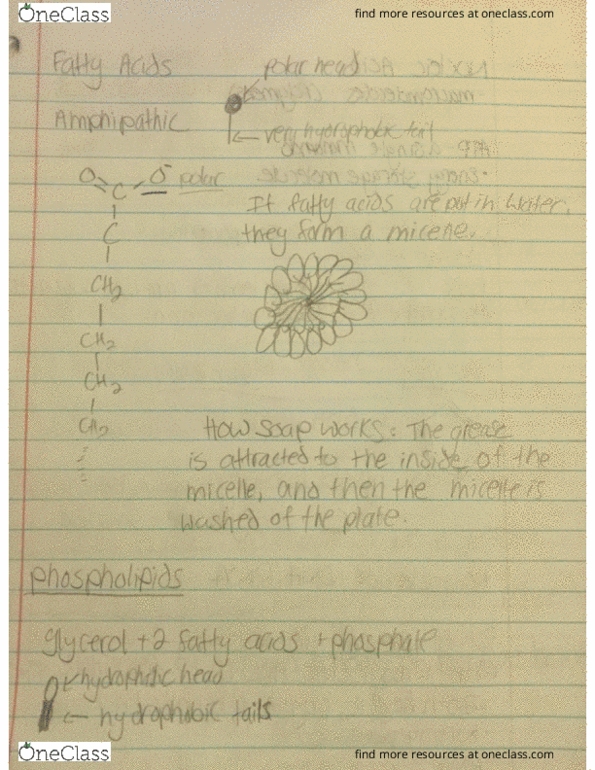 OneClass
find more resources at oneclass.com
Fatty Acids
polar head
Amphipathic
very hydrophobic tail
O C O⁻ polar
If fatty acids are put in water,
C
they form a micene.
CH2
CH2
CH2
CH2
How soap works: The grease
is attracted to the inside of the
micelle, and then the micelle is
washed of the plate.
phospholipids
glycerol + 2 fatty acids + phosphate
hydrophilic head
hydrophobic tails
OneClass
find more resources at oneclass.com